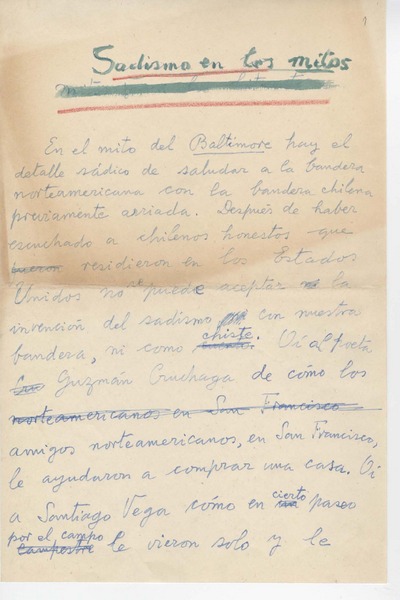 1
Sadismo en los mitos
En el mito del Baltimore hay el
detalle sádico de saludar a la bandera
norteamericana con la bandera chilena
previamente arriada. Después de haber
escuchado a chilenos honestos que
fueron residieron en los Estados
Unidos no se puede aceptar ni la
invención del sadismo con nuestra
bandera, ni como chiste. Oí al poeta
Guzmán Cruchaga de cómo los
norteamericanos en San Francisco
amigos norteamericanos, en San Francisco,
le ayudaron a comprar una casa. Oí
a Santiago Vega cómo en cierto paseo
por el campo
campestre le vieron solo y le